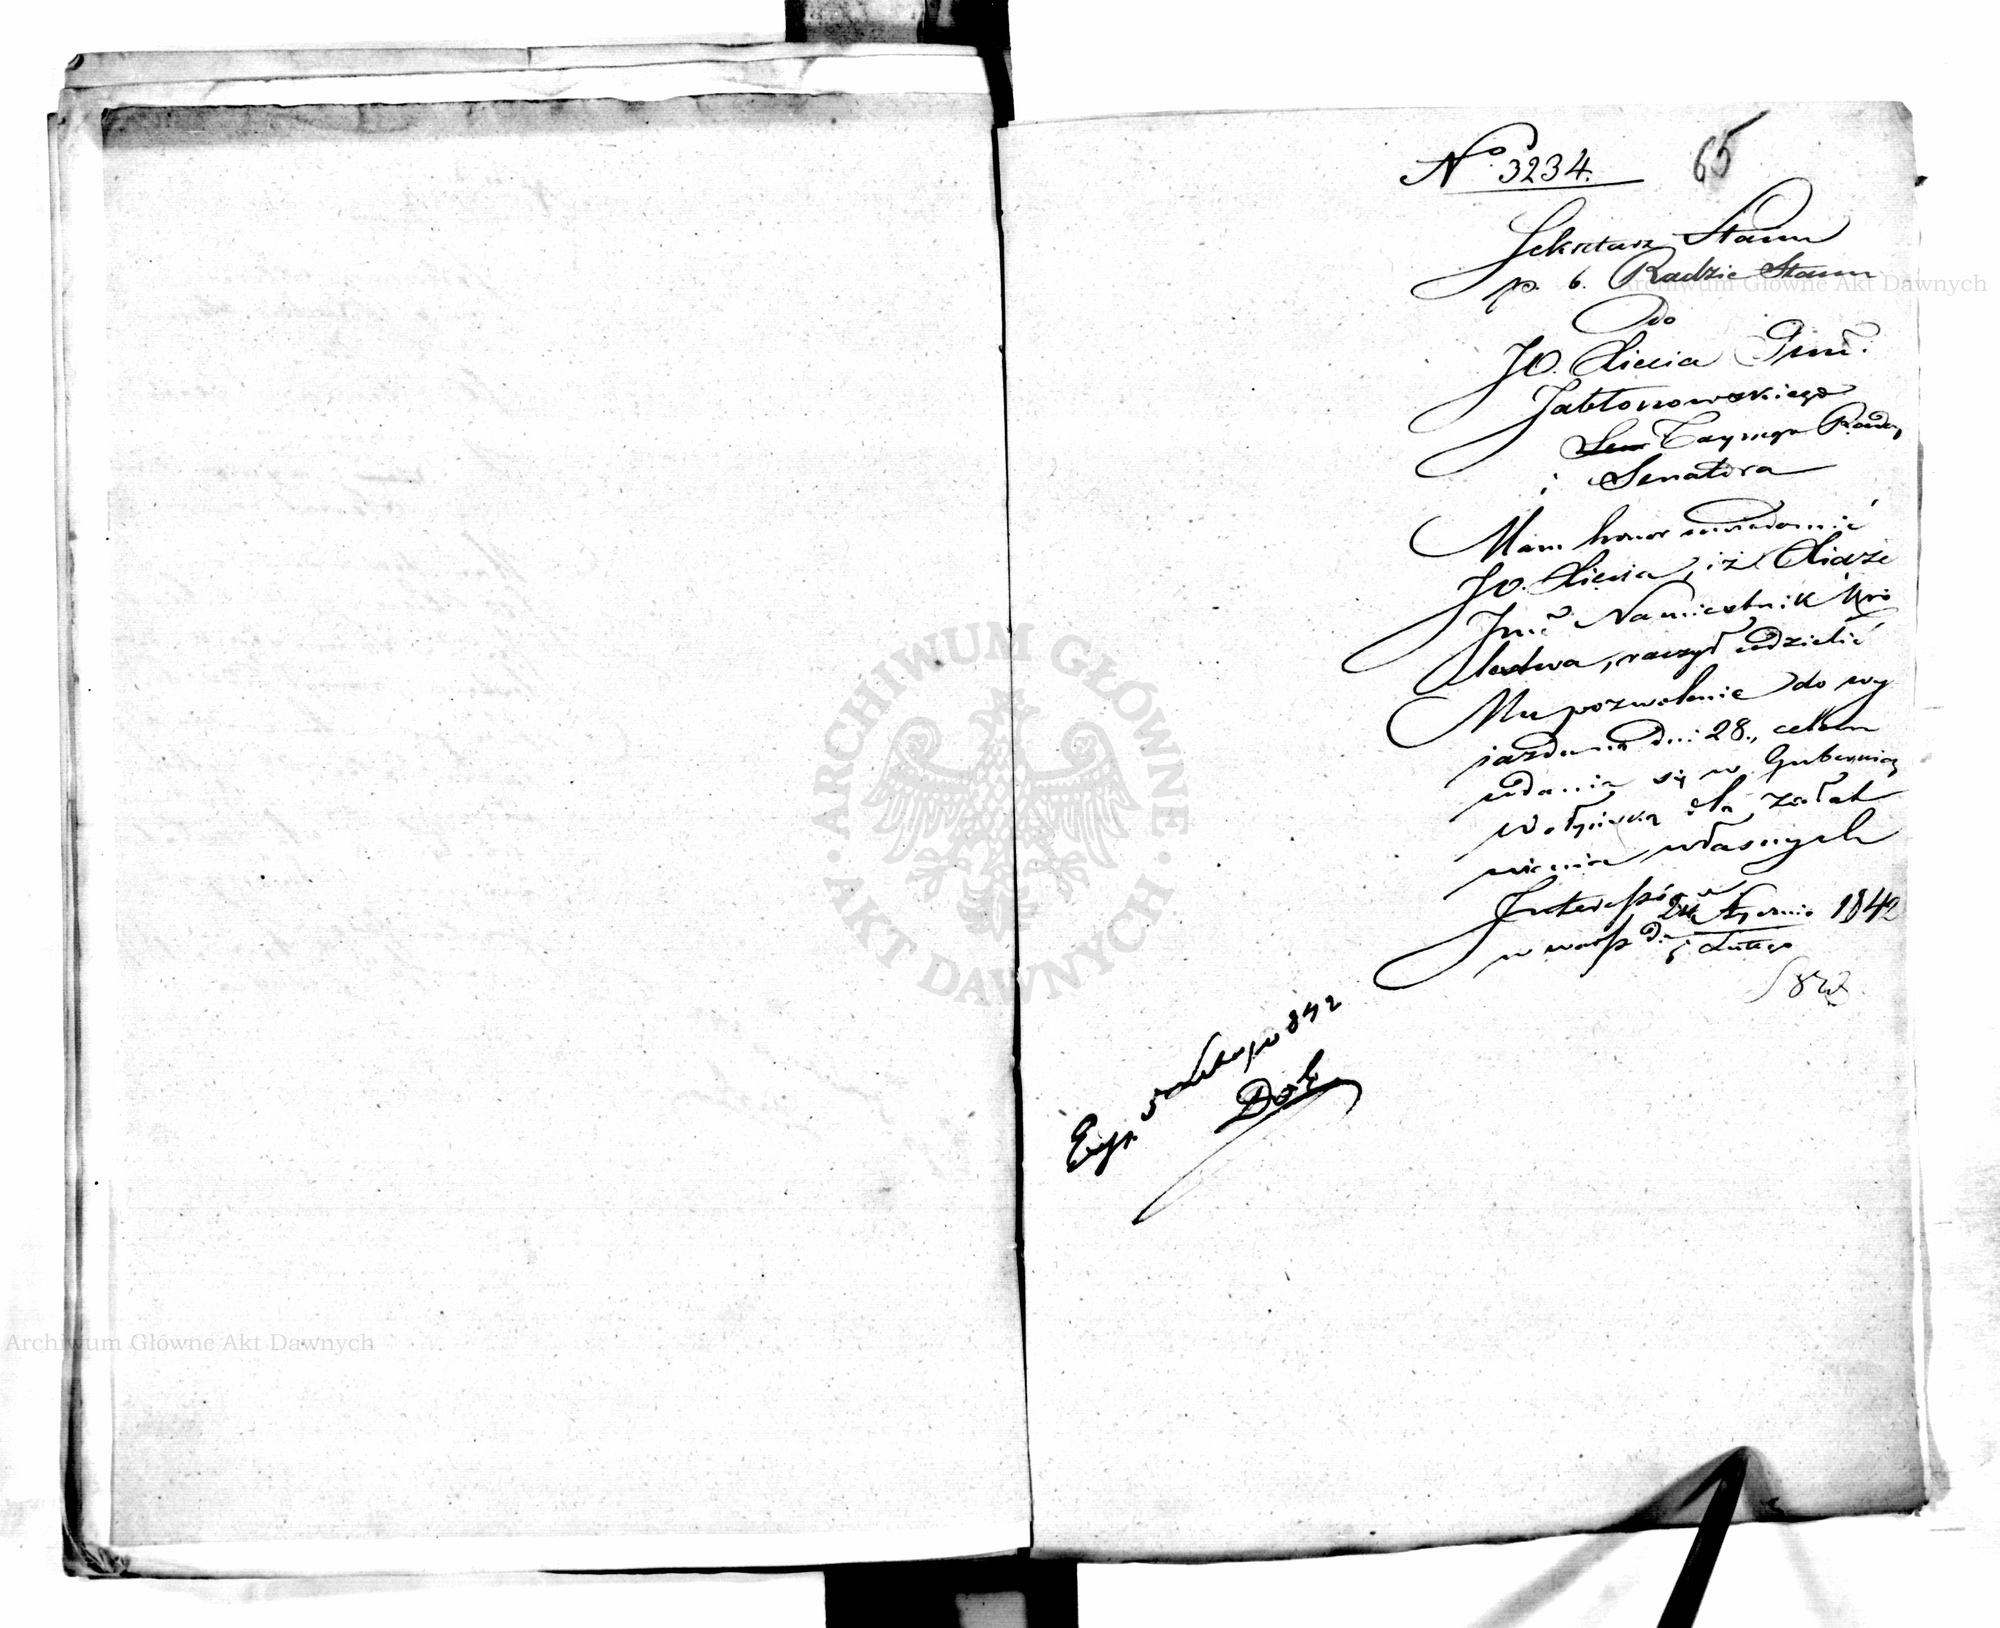 65
No 3234.
Sekretarz Stanu
p. b. Radzie Stanu
Do
JO. Xięcia Jmć.
Jabłonowskiego
Sen Taynego Radcy
i Senatora
Mam honor uwiadomić
JO. Xięcia, iż Xiąże
Jmć Namiestnik Kró
lestwa, raczył udzielić
Mu pozwolenie do wy
jazdu na dni 28., celem
udania się w Gubernią
Wołyńską dla załat
wienia własnych
Interessów
w Warsz d. 24 Stycznia 1842
5 Lutego
Exp. 5 Lutego 842
ARCHIWUM GŁÓWNE
AKT DAWNYCH
Archiwum Główne Akt Dawnych
Archiwum Główne Akt Dawnych